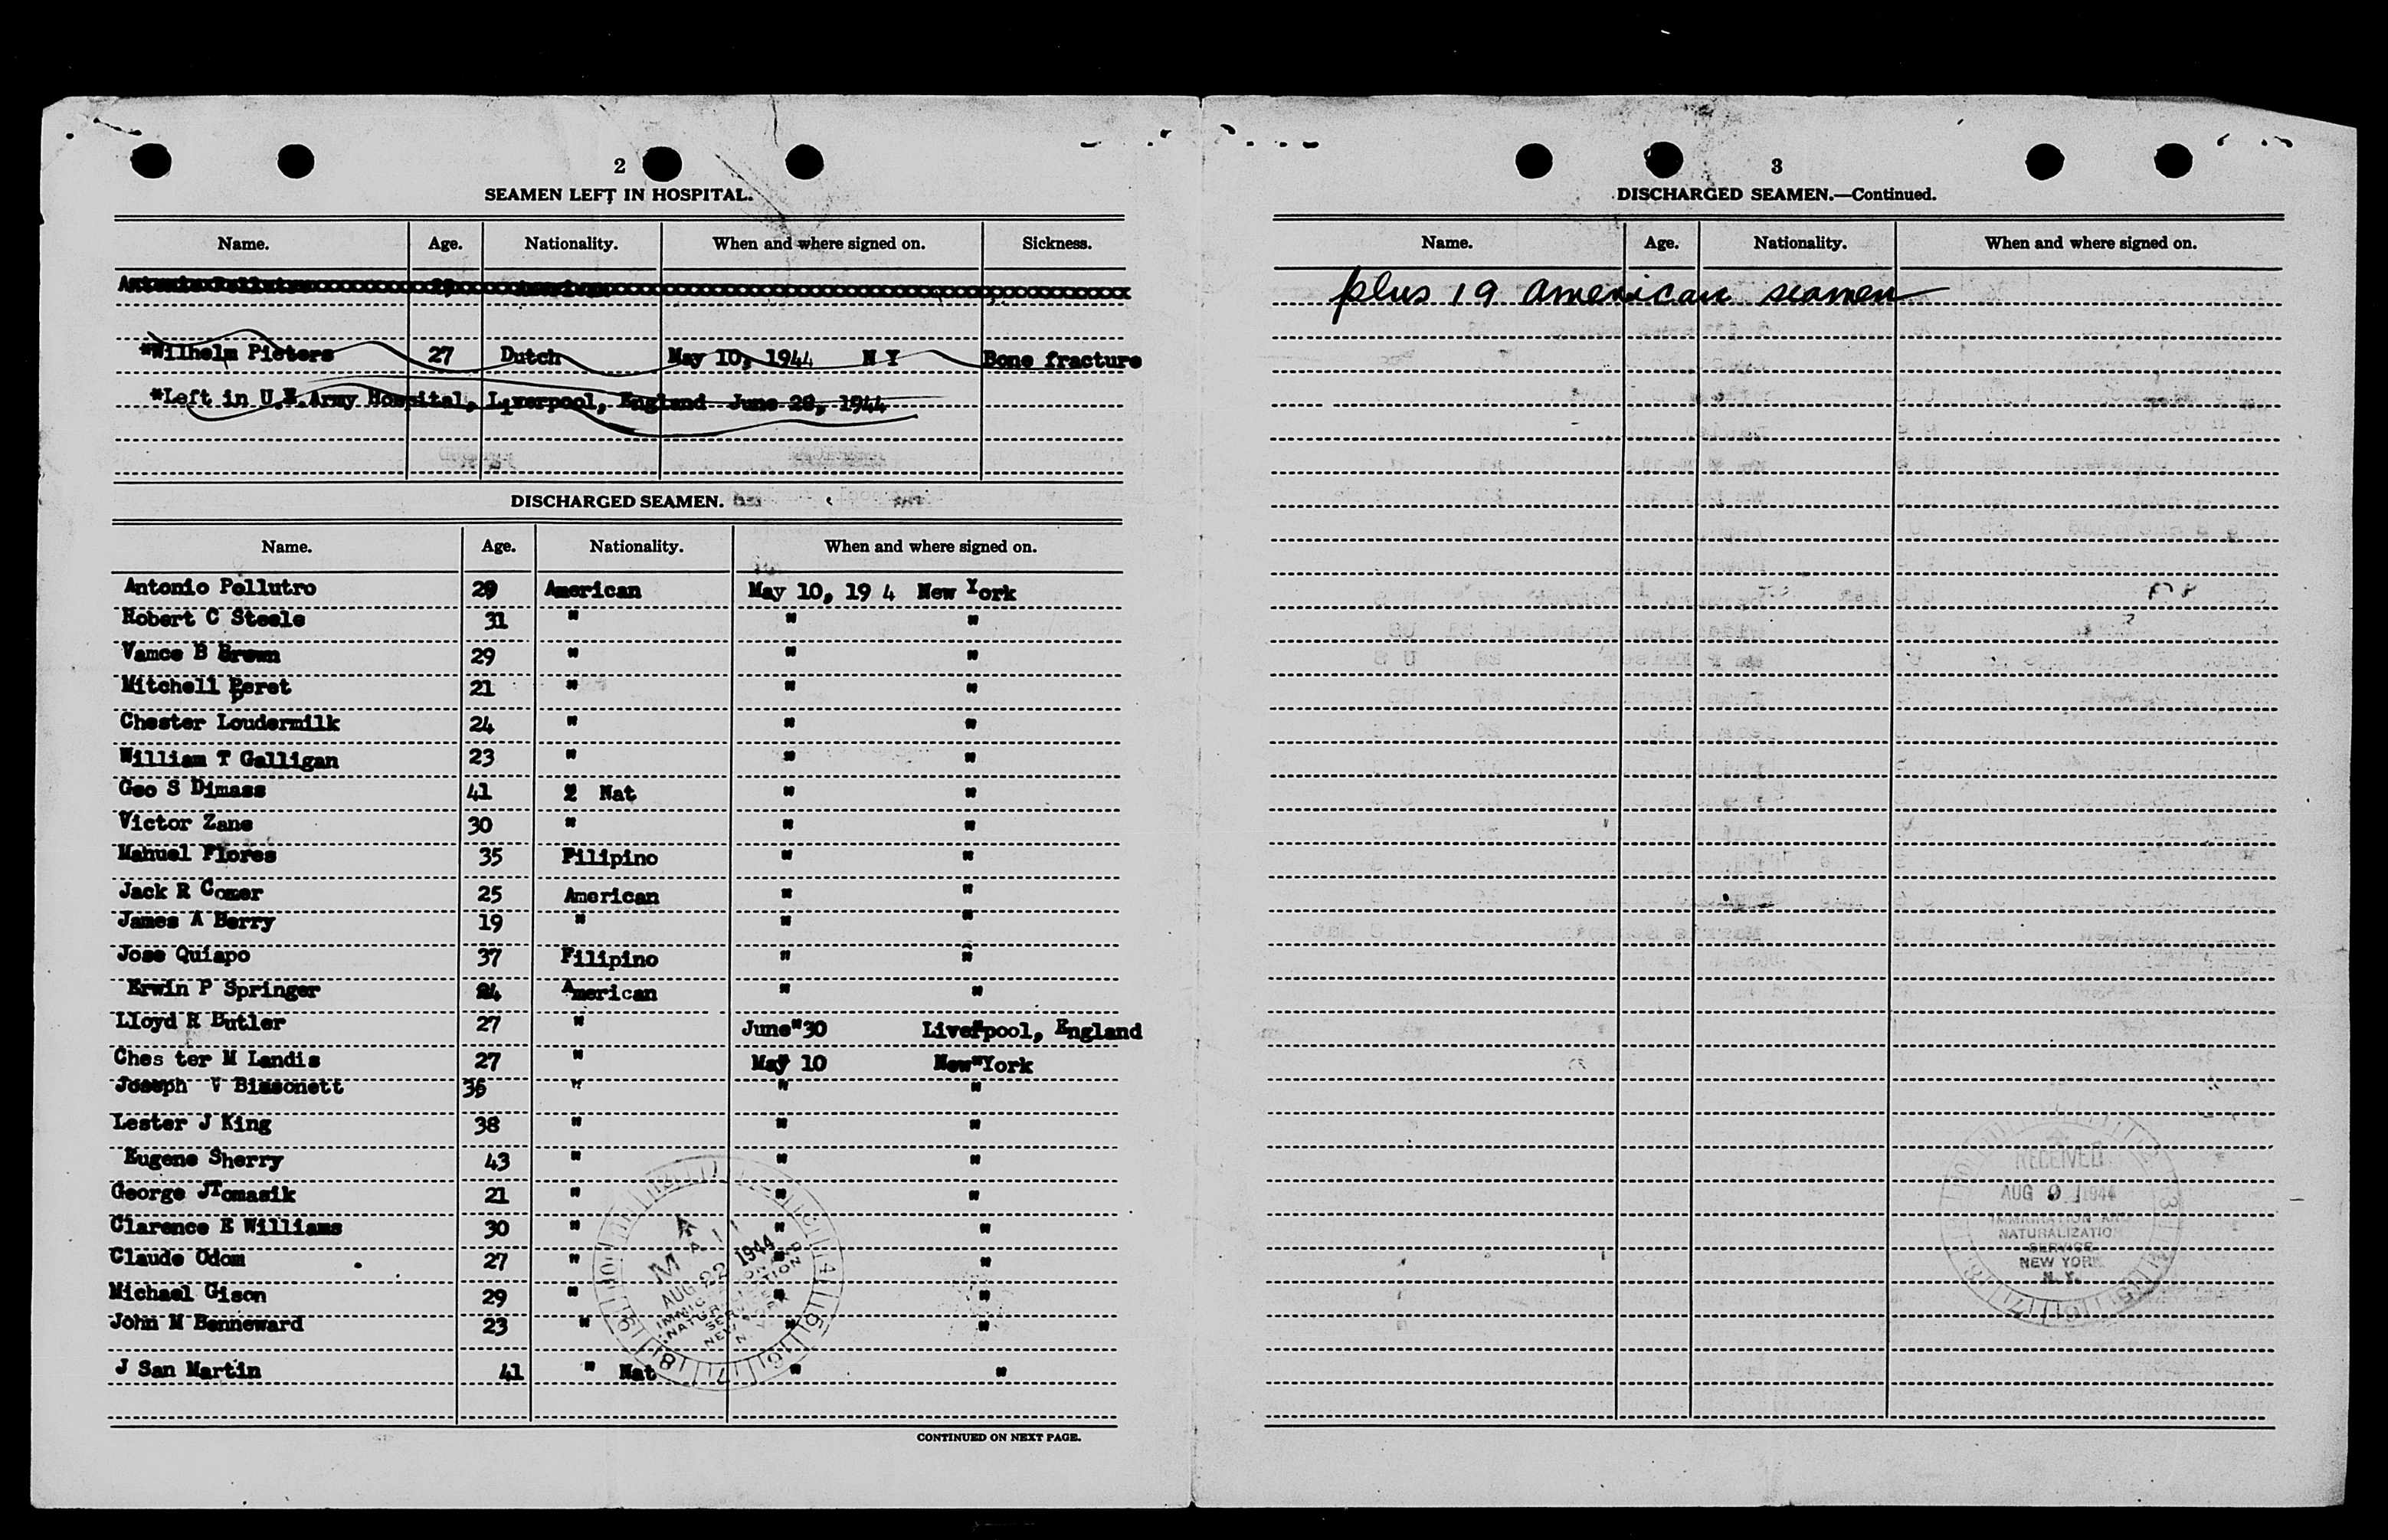 2
SEAMEN LEFT IN HOSPITAL.
Name. Age. Nationality. When and where signed on. Sickness.
Antonio Pellutro 29 American
*Wilhelm Pieters 27 Dutch May 10, 1944 N Y Bone fracture
*Left in U.S.Army Hospital, Liverpool, England June 28, 1944
DISCHARGED SEAMEN.
Name. Age. Nationality. When and where signed on.
Antonio Pellutro 29 American May 10, 19 4 New York
Robert C Steele 31 " " "
Vance B Brown 29 " " "
Mitchell Peret 21 " " "
Chester Loudermilk 24 " " "
William T Galligan 23 " " "
Geo S Dimass 41 " Nat " "
Victor Zane 30 " " "
Manuel Flores 35 Filipino " "
Jack R Comer 25 American " "
James A Berry 19 " " "
Jose Quiapo 37 Filipino " "
Erwin P Springer 24 American " "
Lloyd R Butler 27 " June 30 Liverpool, England
Ches ter M Landis 27 " May 10 New York
Joseph V Bissonett 36 " " "
Lester J King 38 " " "
Eugene Sherry 43 " " "
George J Tomasik 21 " " "
Clarence E Williams 30 " " "
Claude Odom 27 " " "
Michael Gison 29 " " "
John M Benneward 23 " " "
J San Martin 41 " Nat " "
MAIL
AUG 22 1944
IMMIGRATION AND
NATURALIZATION
SERVICE
NEW YORK
N. Y.
CONTINUED ON NEXT PAGE.
3
DISCHARGED SEAMEN.—Continued.
Name. Age. Nationality. When and where signed on.
plus 19 American seamen
RECEIVED
AUG 9 1944
IMMIGRATION AND
NATURALIZATION
SERVICE
NEW YORK
N. Y.